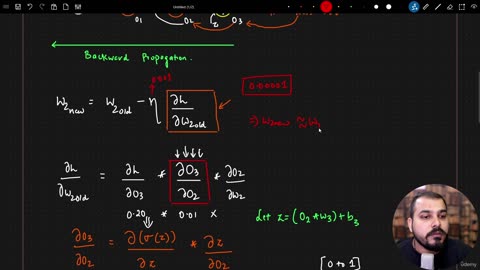 O₁ O₂ O₃
Backward Propagation.
0.001
W₂new = W₂old - η ∂h/∂W₂old
0.00001
⇒ W₂new ≈ W₂
∂h/∂W₂old = ∂h/∂O₃ * ∂O₃/∂O₂ * ∂O₂/∂W₂
0.20 * 0.01 x
Let z = (O₂ * W₃) + b₃
∂O₃/∂O₂ = ∂(σ(z))/∂z * ∂z/∂O₂
[0 to 1]
Udemy